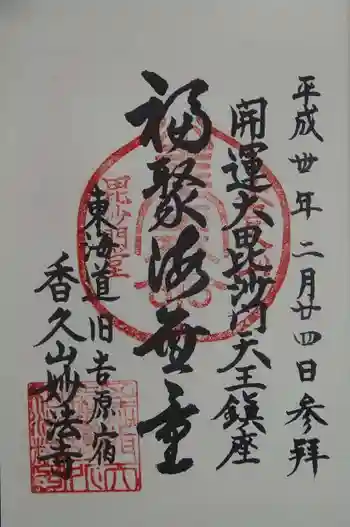 平成丗年二月廿四日参拝
開運大毘沙門天王鎮座
福聚海無量
東海道旧吉原宿
香久山妙法寺
毘沙門堂